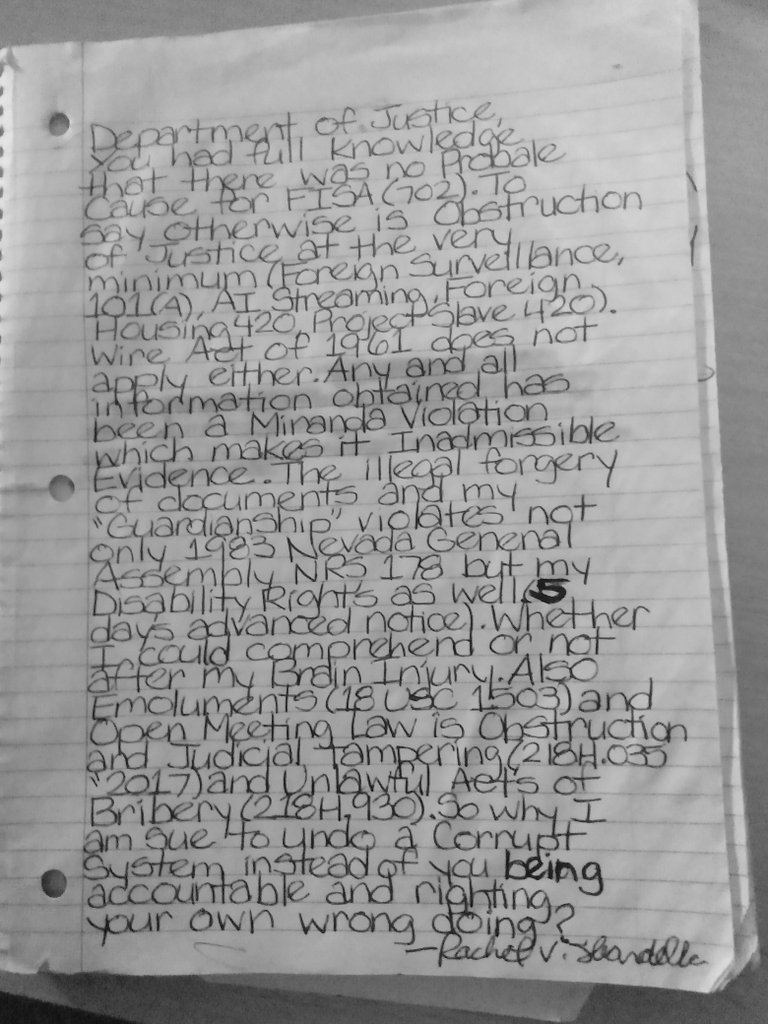 Department of Justice,
You had full knowledge
that there was no Probale
Cause for FISA (702). To
say otherwise is Obstruction
of Justice at the very
minimum (Foreign Survellance,
101(A), AI Streaming, Foreign
Housing 420, Project Slave 420).
Wire Act of 1961 does not
apply either. Any and all
information obtained has
been a Miranda Violation
which makes it Inadmissible
Evidence. The illegal forgery
of documents and my
"Guardianship" violates not
only 1983 Nevada General
Assembly NRS 178 but my
Disability Rights as well (5
days advanced notice). Whether
I could comprehend or not
after my Brain Injury. Also
Emoluments (18 USC 1503) and
Open Meeting Law is Obstruction
and Judicial Tampering (218H.035
"2017) and Unlawful Acts of
Bribery (218H.930). So why I
am sue to undo a Corrupt
System instead of you being
accountable and righting
your own wrong doing?
—Rachel V.